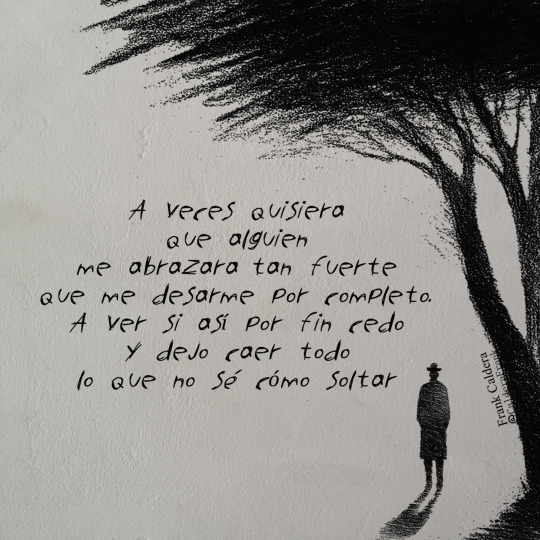 A veces quisiera
que alguien
me abrazara tan fuerte
que me desarme por completo.
A ver si así por fin cedo
y dejo caer todo
lo que no sé cómo soltar
Frank Caldera